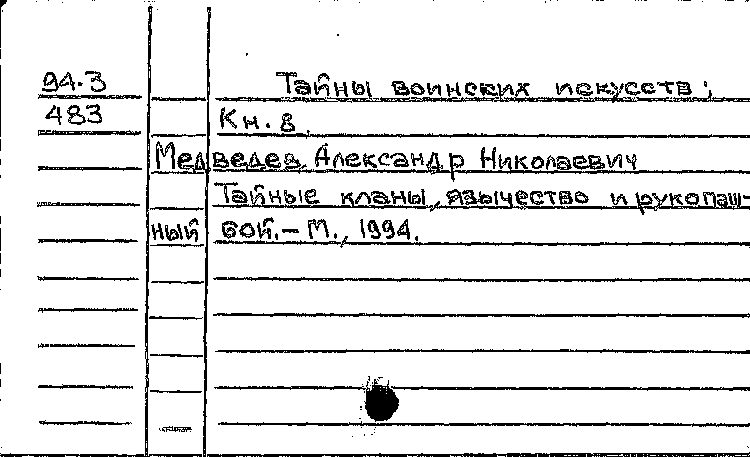 94.3 Тайны воинских искусств;
483 Кн. 8
Медведев Александр Николаевич
Тайные кланы, язычество и рукопаш-
ный бой.- М., 1994.